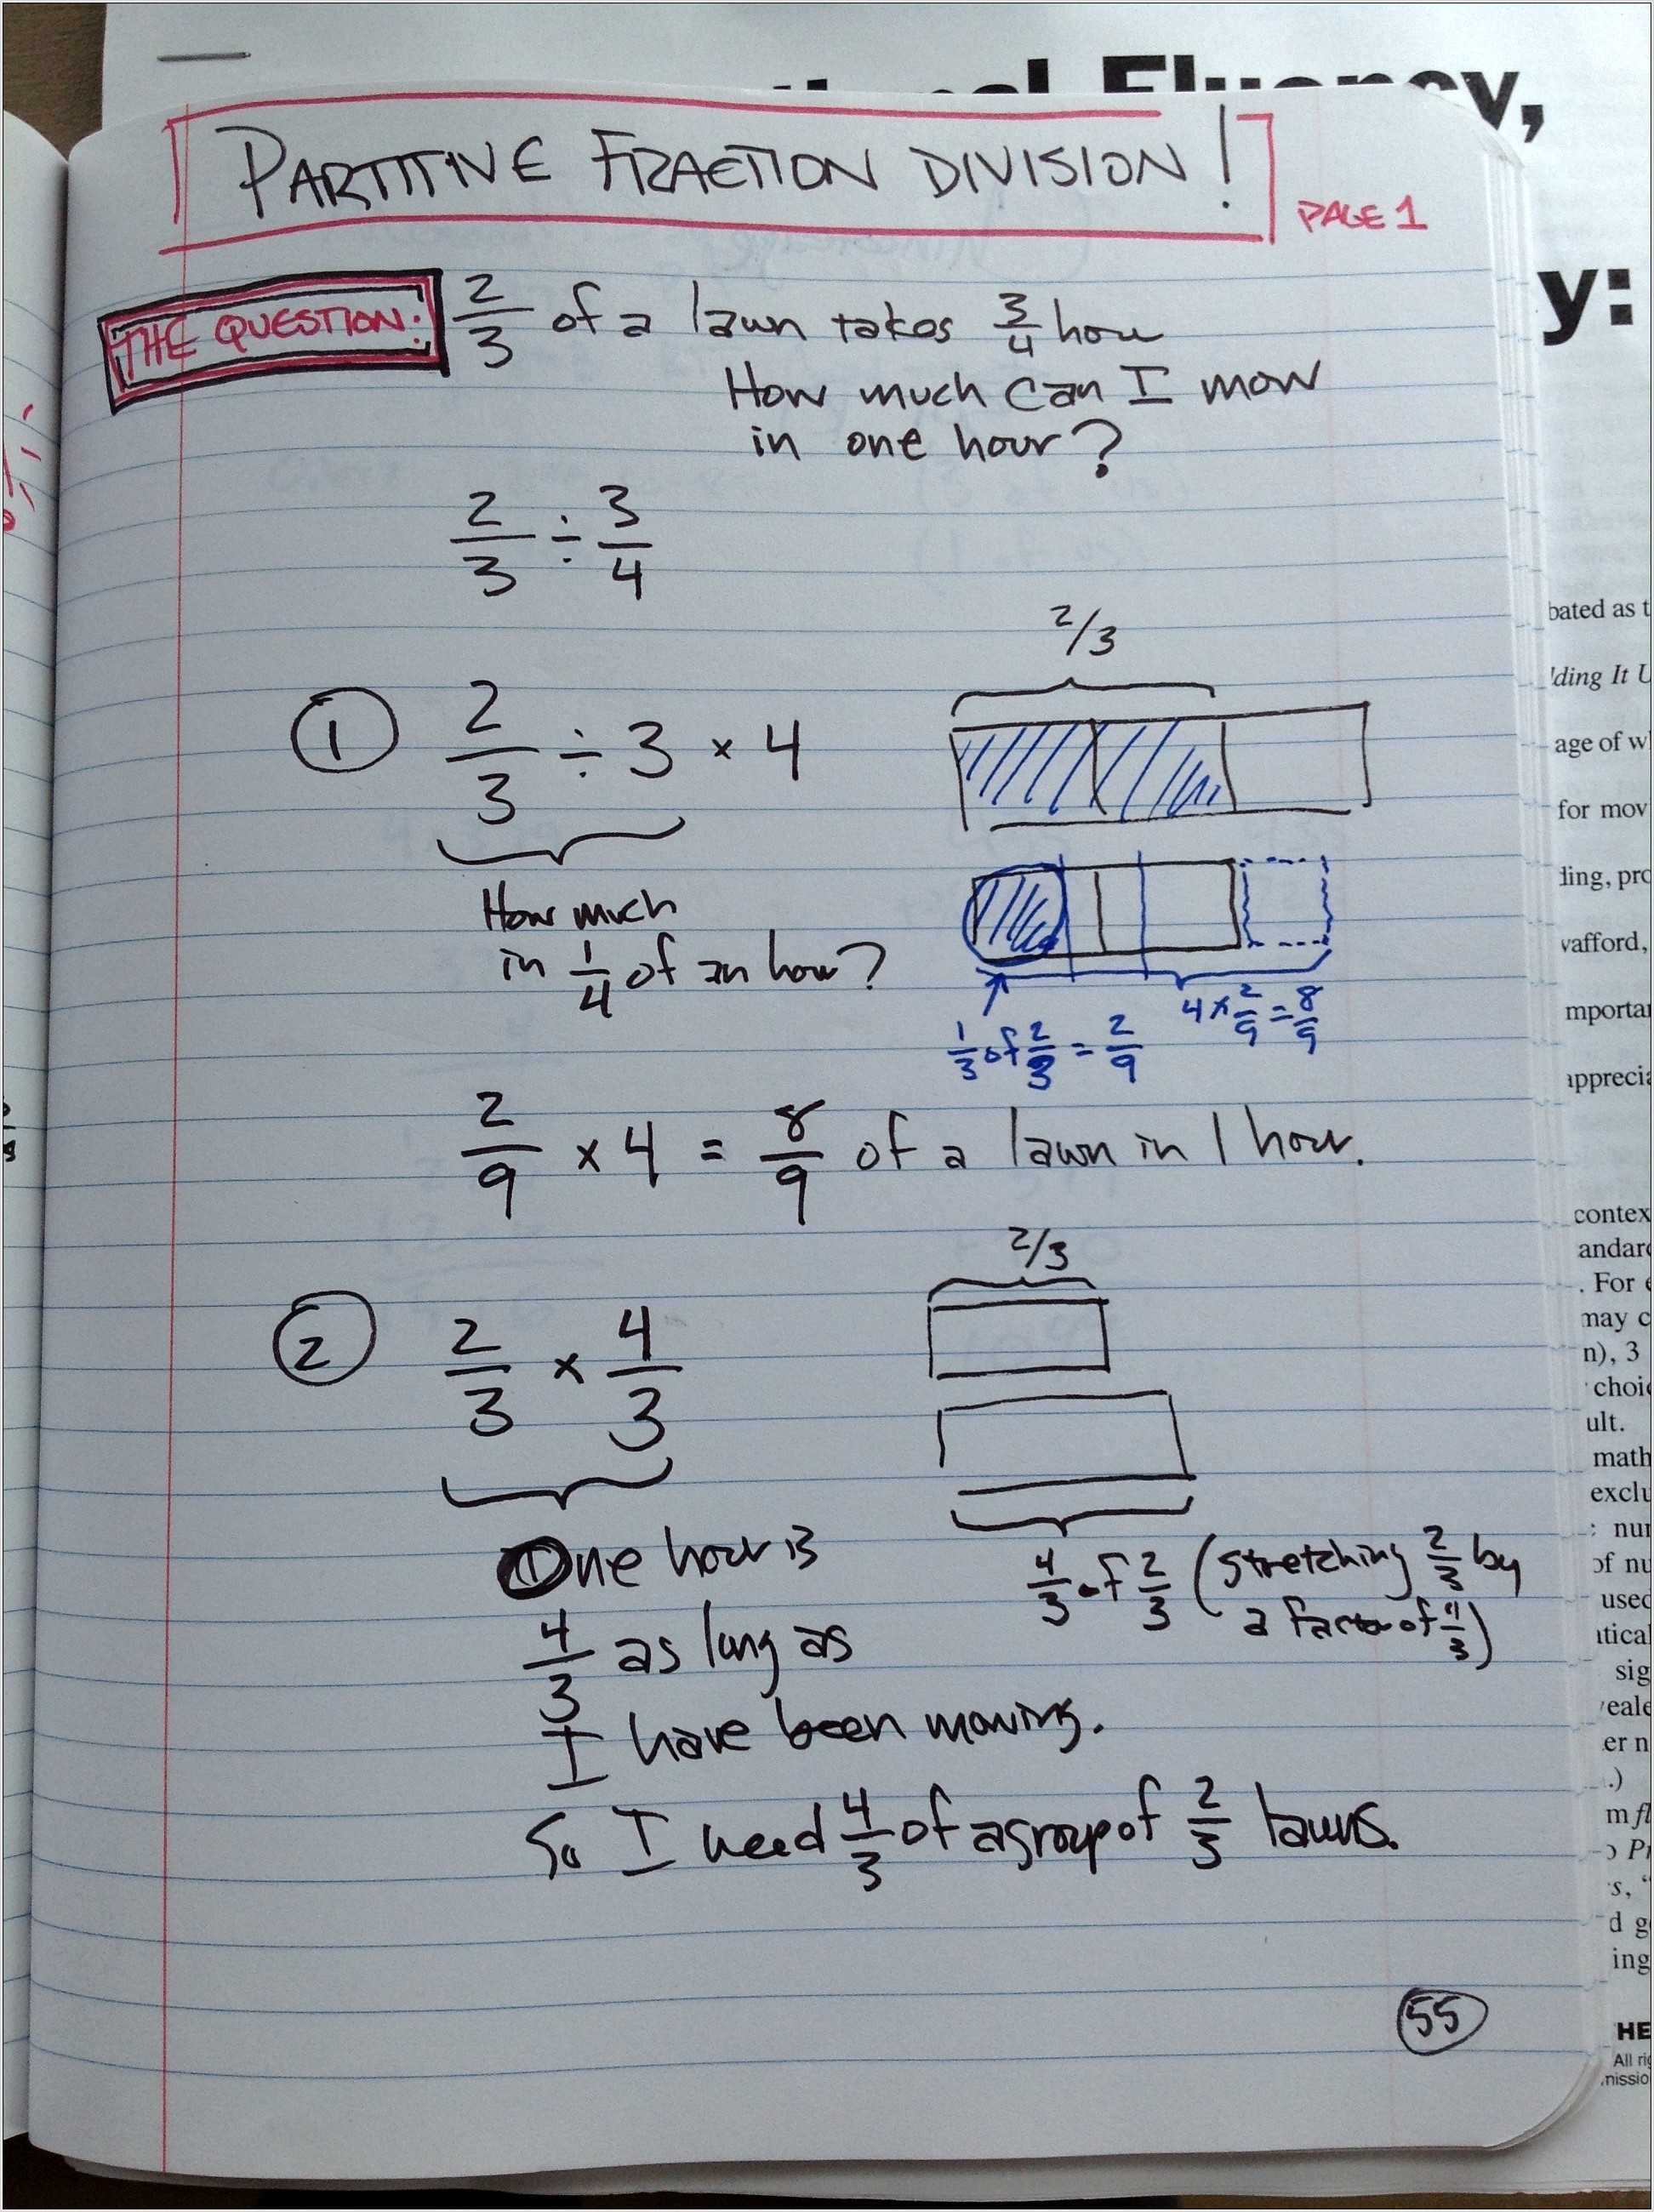 PARTITIVE FRACTION DIVISION!
PAGE 1
THE QUESTION:
2/3 of a lawn takes 3/4 hour
How much can I mow
in one hour?
2/3 ÷ 3/4
2/3
① 2/3 ÷ 3 × 4
How much
in 1/4 of an hour?
1/3 of 2/3 = 2/9
4 × 2/9 = 8/9
2/9 × 4 = 8/9 of a lawn in 1 hour.
2/3
② 2/3 × 4/3
One hour is
4/3 as long as
I have been mowing.
4/3 of 2/3 (stretching 2/3 by
a factor of 4/3)
So I need 4/3 of a group of 2/3 lawns.
55
Fluency,
y:
bated as t
lding It U
age of w
for mov
ling, pro
vafford,
mportan
apprecia
contex
andard
. For e
may c
n), 3
choic
ult.
math
exclu
: nur
of nu
used
atical
sig
veale
er n
.)
m fl
o Pr
s, “
d g
ing
HE
All rig
missio